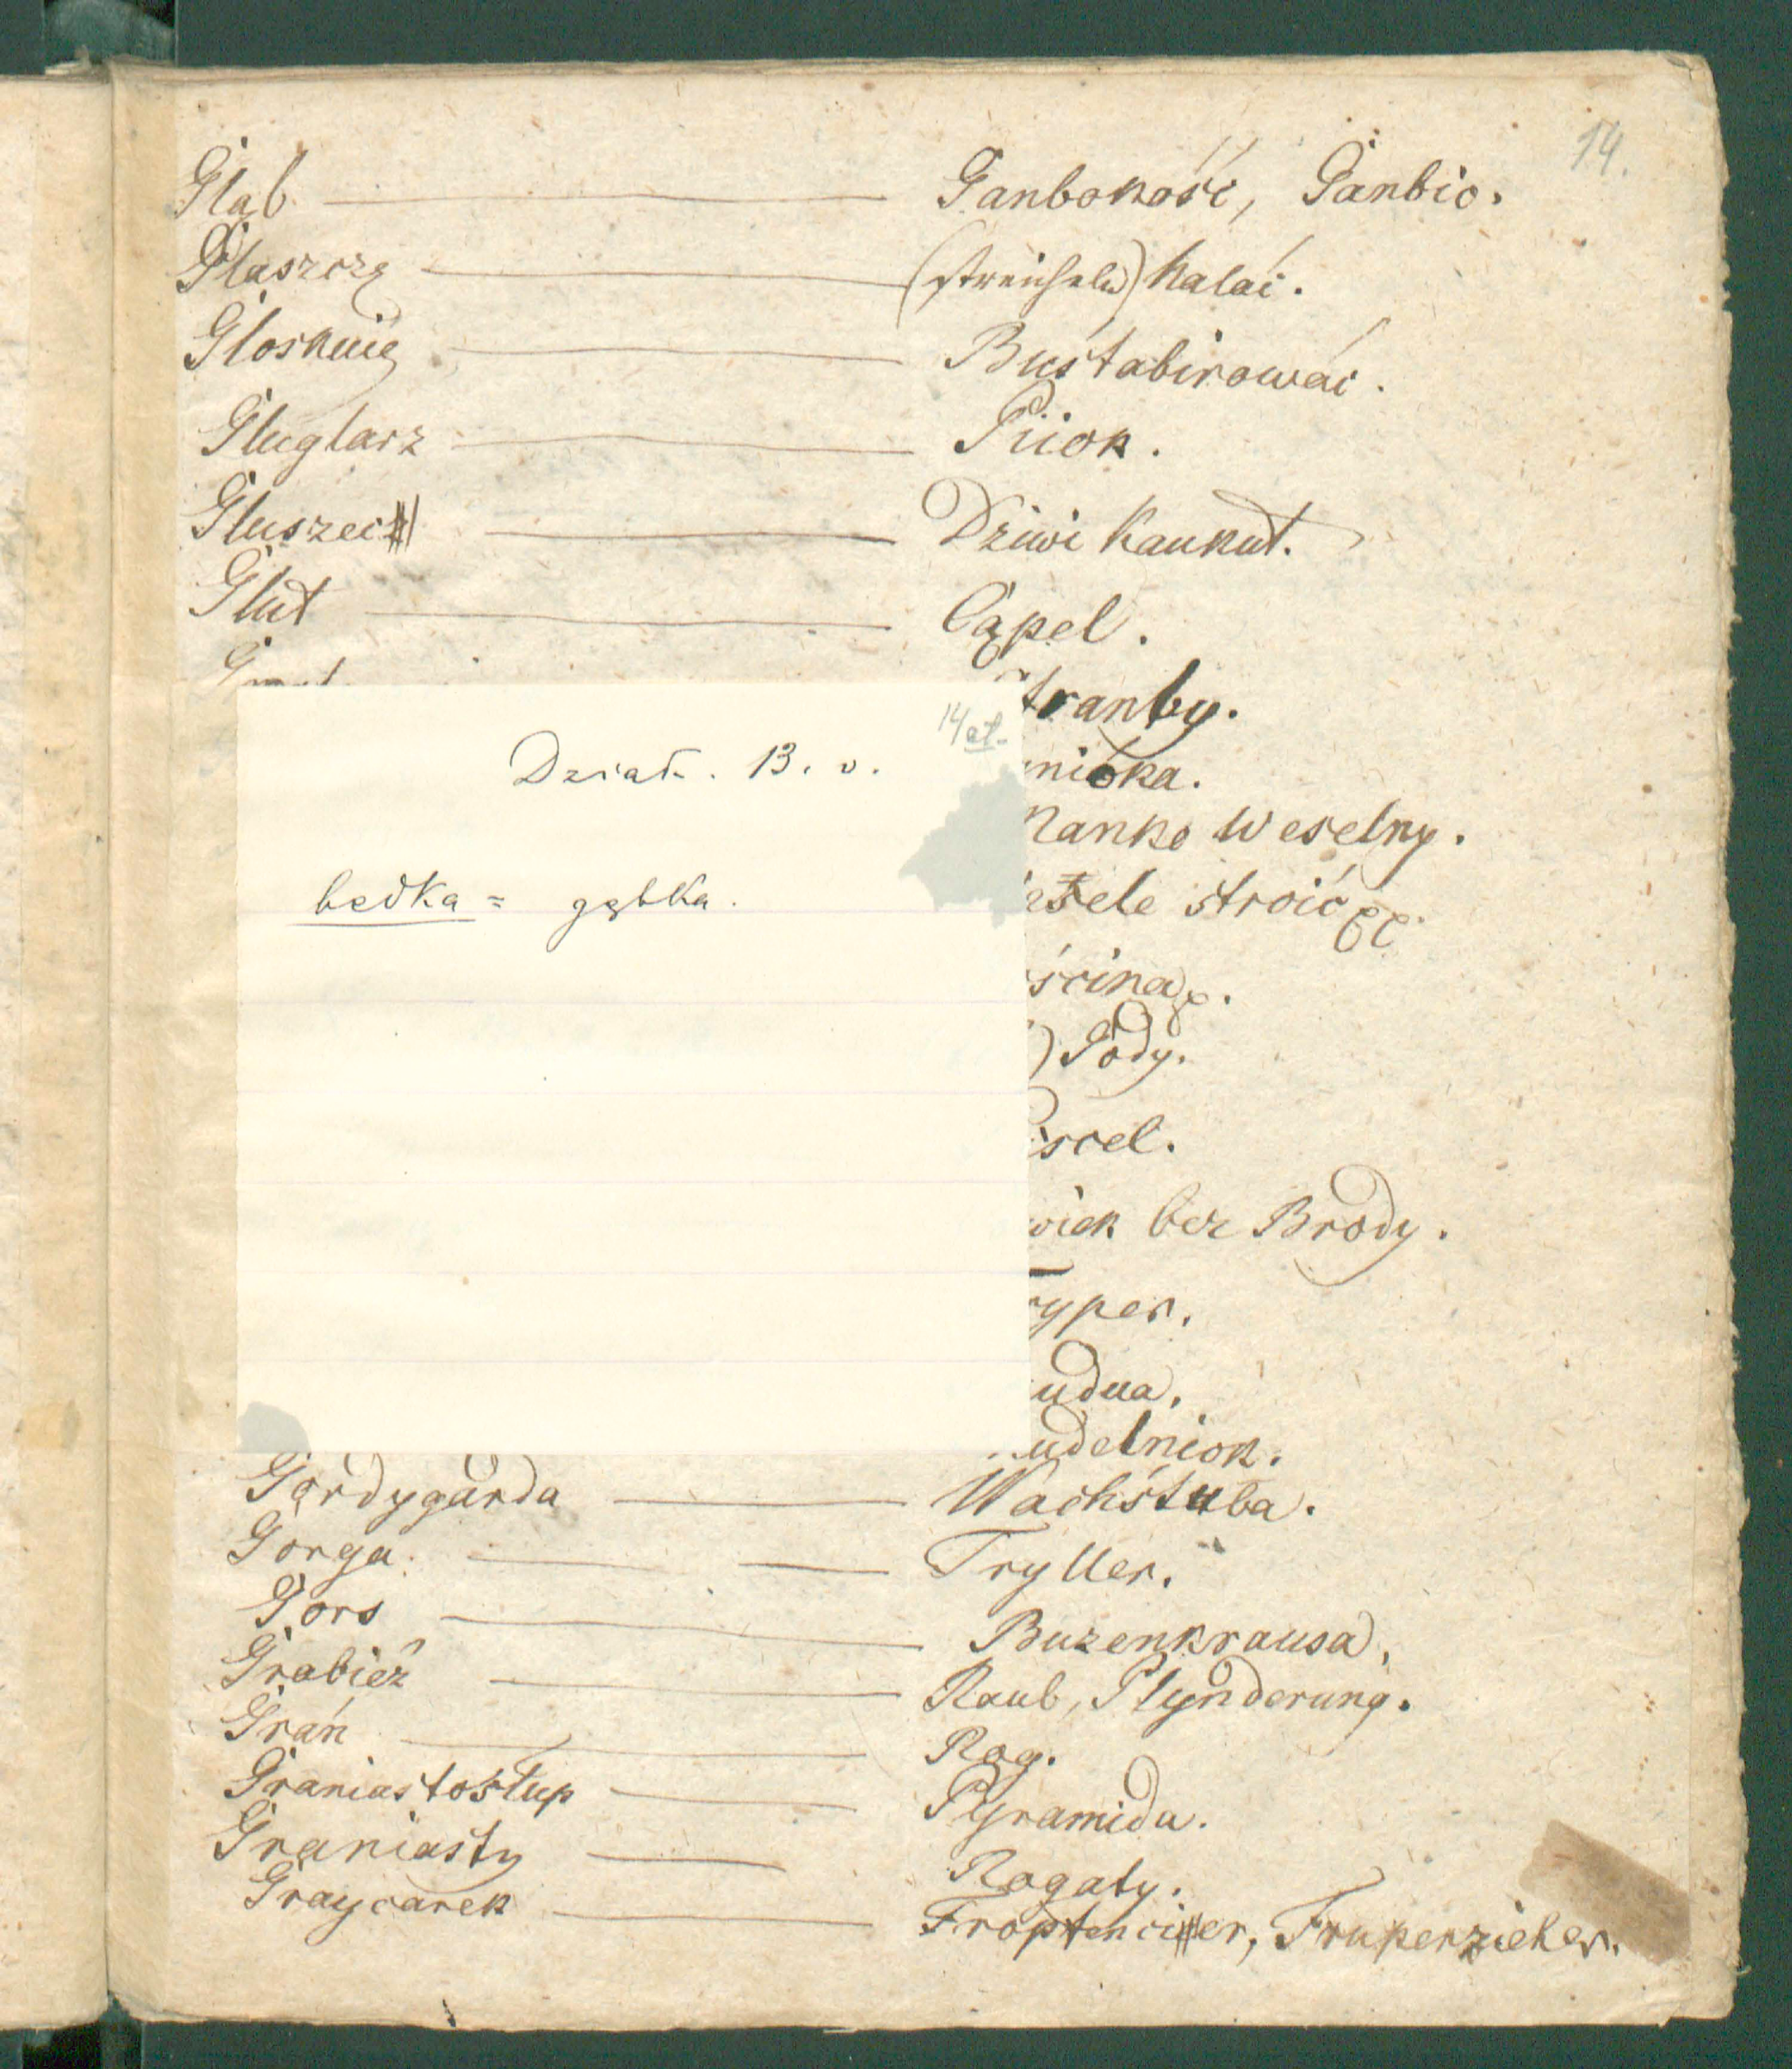 14.
Głąb — Ganbokość, Ganbio.
Głaszczę — (streicheln) halać.
Głosknię — Buśtabirować.
Gluglarz — Piiok.
Głuszec — Dziwi Kaukut.
Glut — Cąpel.
tranby.
14 et.
Dział. 13. v.
nióka.
Kanko Weselny.
bedka = gębka.
sele stroić
ścina
) Gody.
scel.
wiek bez Brody.
ryper.
udua,
udelniok.
Gordygarda — Wachśtuba.
Gorga. — Tryller.
Gors — Buzenkrausa,
Grabież — Raub, Plynderung.
Grań — Rog.
Graniastosłup — Pyramida.
Graniasty — Rogaty.
Graycarek — er, Fruperzieher.